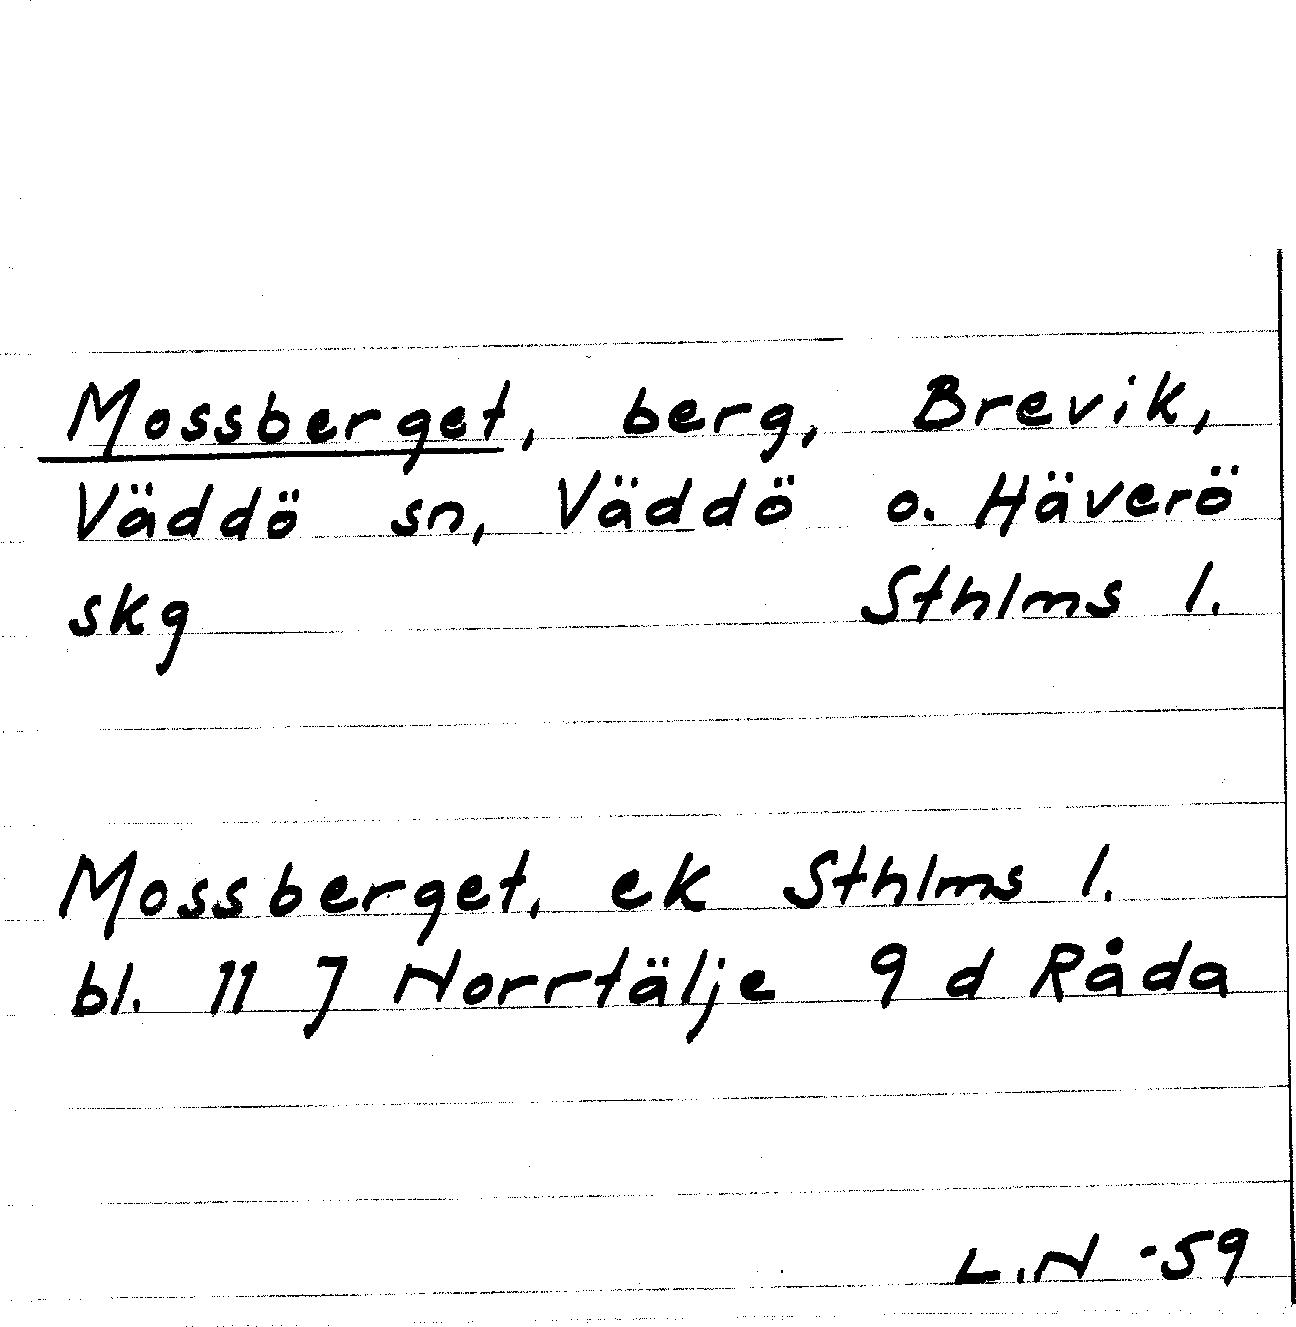 Mossberget, berg, Brevik,
Väddö sn, Väddö o. Häverö
skg Sthlms l.
Mossberget, ek Sthlms l.
bl. 11 J Norrtälje 9 d Råda
L.N -59